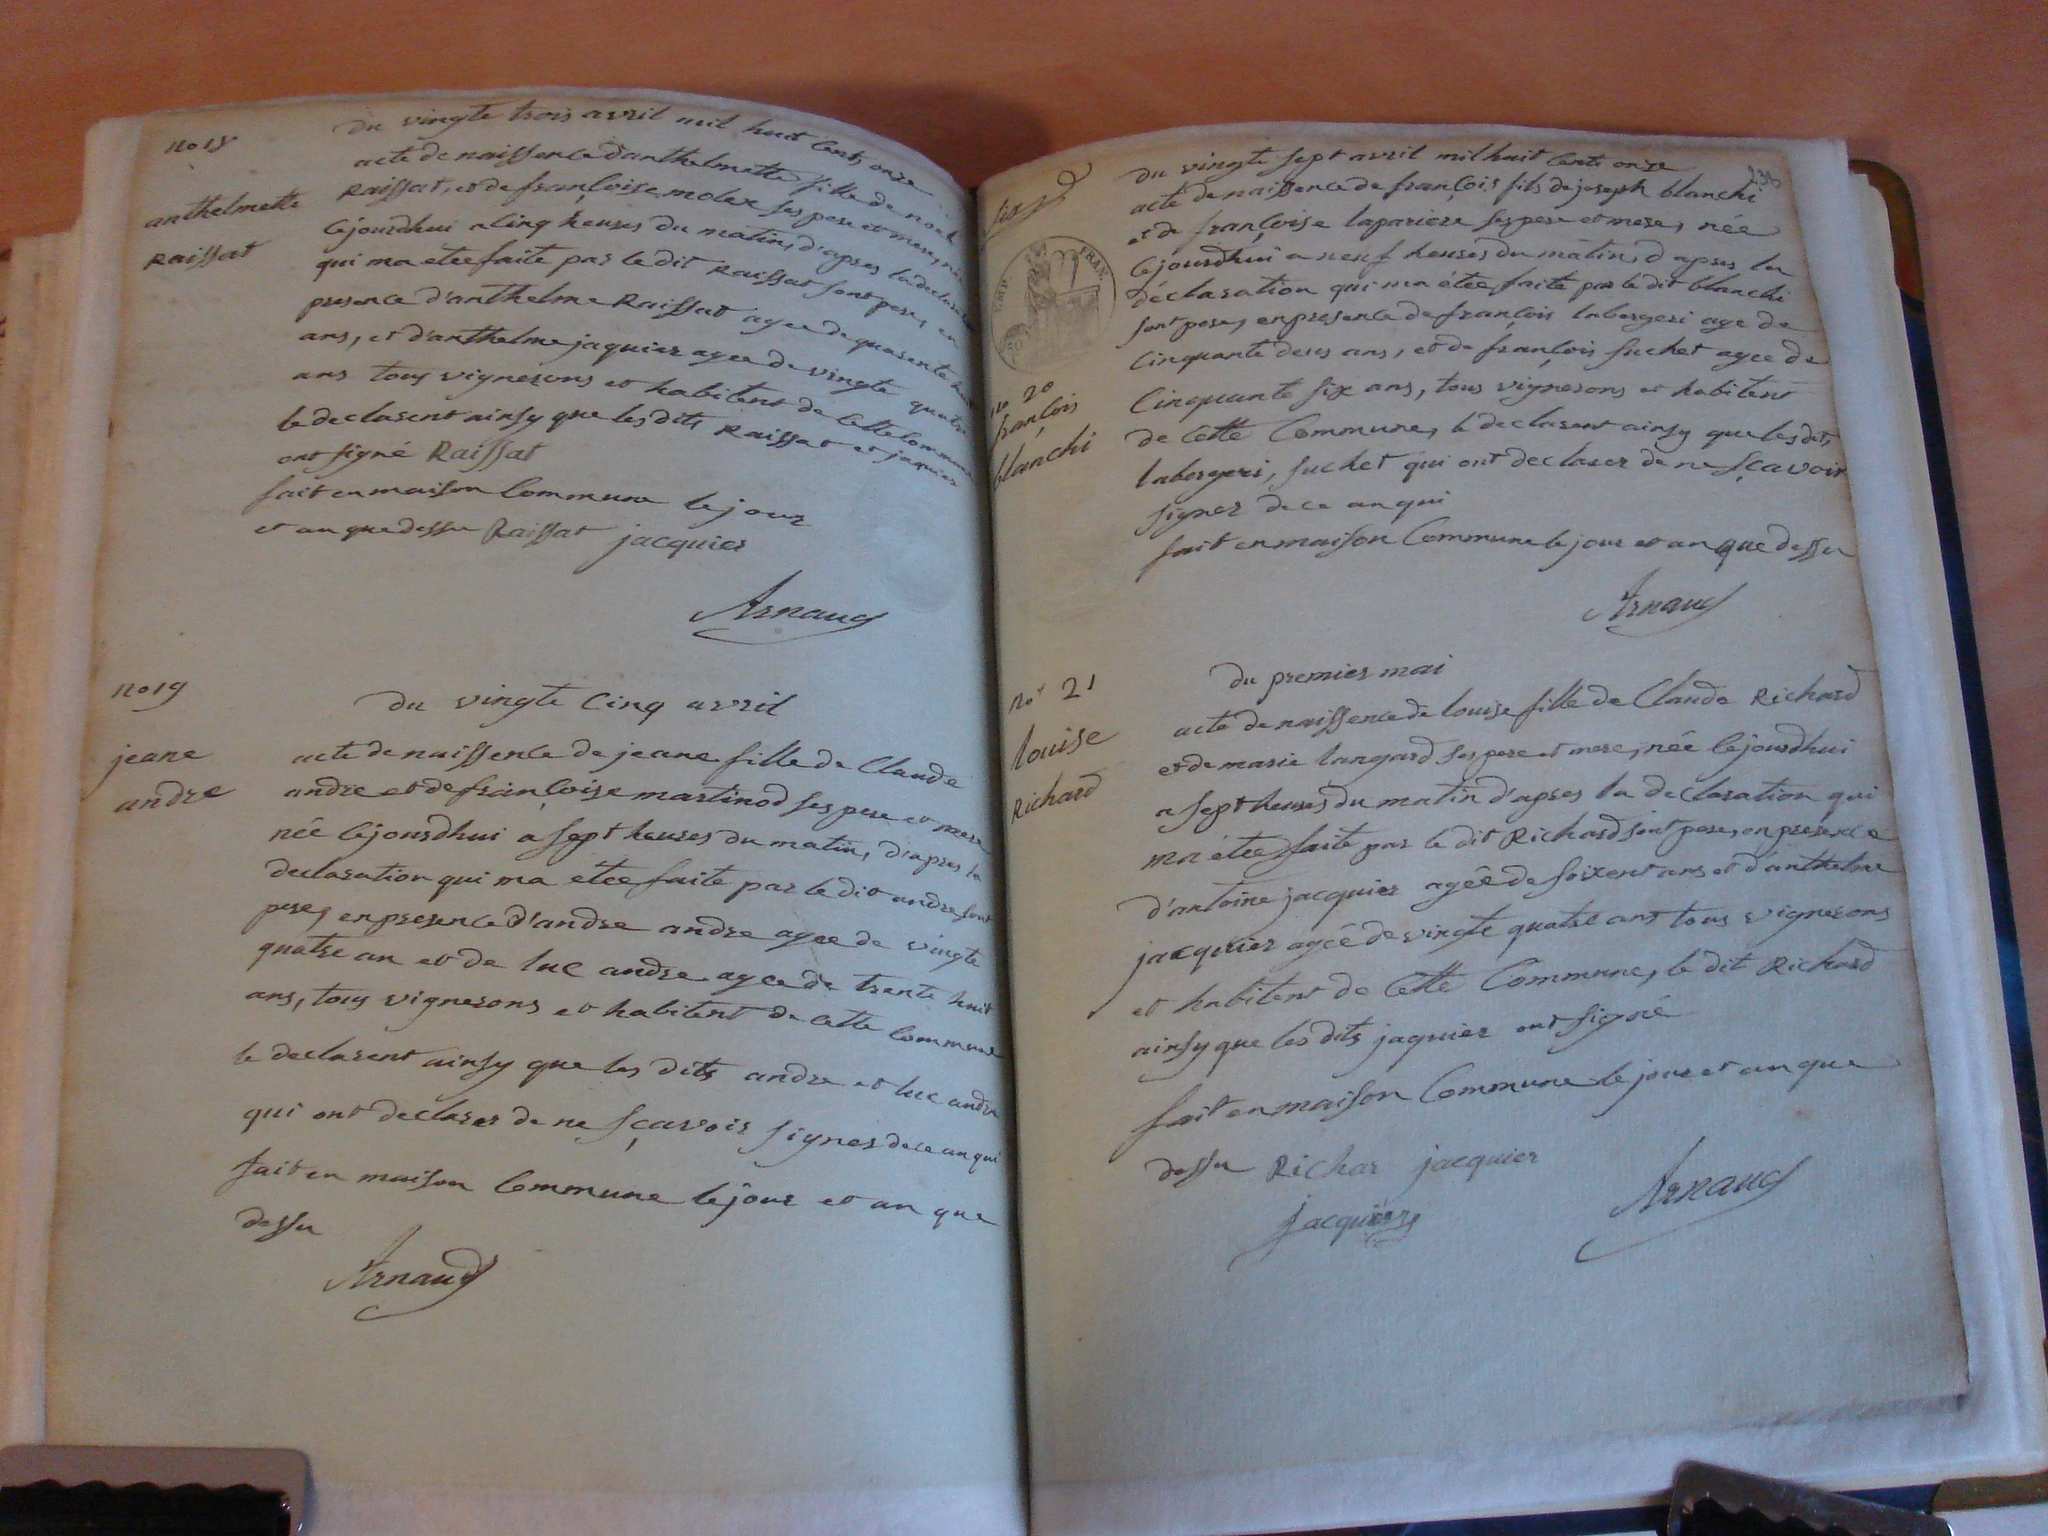 no 18
anthelmette
Raissat
du vingte trois avril mil huit Cents onze
acte de naissence d'anthelmette fille de noel
Raissat, et de françoise molex ses pere et mere, née
Cejourdhui a Cinq heures du matin, d'apres la declaration
qui ma etee faite par le dit Raissat sont pere, en
presence d'anthelme Raissat agee de quarente huit
ans, et d'anthelme jaquier agee de vingte quatre
ans tous vignerons et habitent de Cette Commune
le declarent ainsy que les dits Raissat et jaquier
ont signé Raissat
fait en maison Commune le jour
et an que dessu Raissat jacquier
Arnaud
no 19
jeane
andre
du vingte Cinq avril
acte de naissence de jeane fille de Claude
andre et de françoise martinod ses pere et mere
née Cejourdhui a sept heures du matin, d'apres la
declaration qui ma etee faite par le dit andre sont
pere, en presence d'andre andre agee de vingte
quatre an et de luc andre agee de trente huit
ans, tous vignerons et habitent de Cette Commune
le declarent ainsy que les dits andre et luc andre
qui ont declarer de ne sçavoir signer de ce an qui
fait en maison Commune le jour et an que
dessu
Arnaud
EMP. FRAN.
no 20
françois
blanchi
du vingte sept avril mil huit Cents onze
acte de naissence de françois fils de joseph blanchi
et de françoise lapariere ses pere et mere, née
Cejourdhui a neuf heures du matin, d'apres la
déclaration qui ma étée faite par le dit blanchi
sont pere, en presence de françois labergeri age de
Cinquante deus ans, et de françois suchet agee de
Cinquante six ans, tous vignerons et habitent
de Cette Commune, le declarent ainsy que les dits
labergeri, suchet qui ont declarer de ne sçavoir
signer de ce an qui
fait en maison Commune le jour et an que dessu
Arnaud
no 21
louise
Richard
du premier mai
acte de naissence de louise fille de Claude Richard
et de marie langard ses pere et mere, née Cejourdhui
a sept heures du matin d'apres la declaration qui
ma étée faite par le dit Richard sont pere, en presence
d'antoine jacquier agée de soixent ans et d'anthelme
jacquier agée de vingte quatre ans tous vignerons
et habitent de Cette Commune, le dit Richard
ainsy que les dits jaquier ont signé
fait en maison Commune le jour et an que
dessu Richar jacquier
jacquier Arnaud